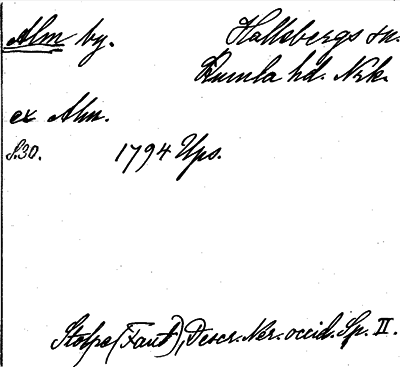 Alm by.
Hallsbergs sn.
Kumla hd. Nrk.
ex Alm.
S.30. 1794 Ups.
Stolpe (Fant), Descr. Ner. occid. Sp. II.